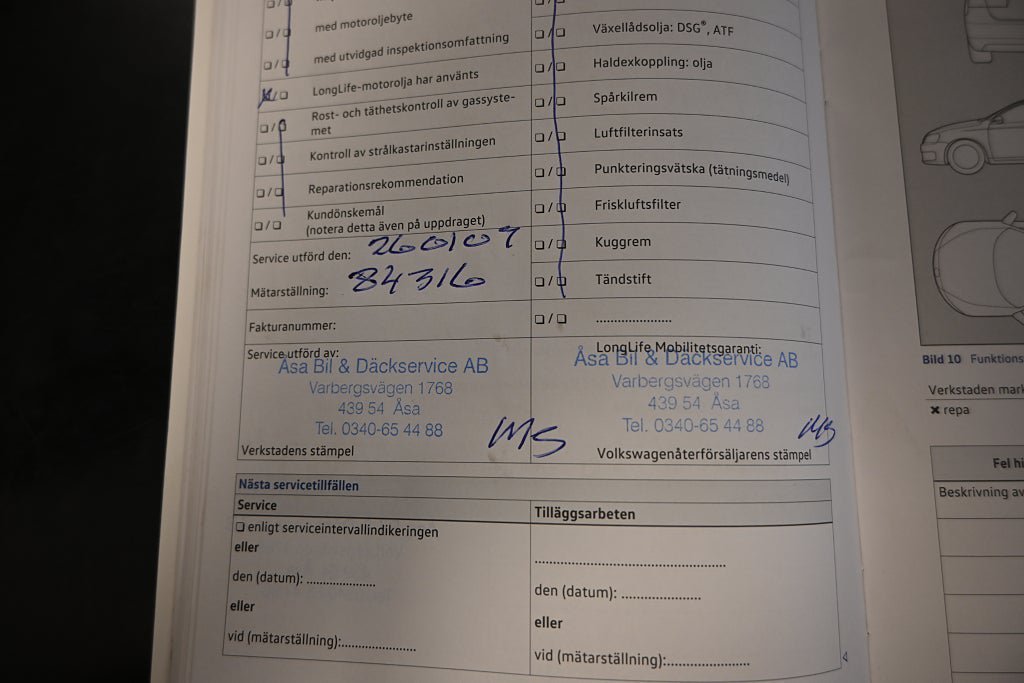 ❏ / ❏ med motoroljebyte
❏ / ❏ med utvidgad inspektionsomfattning
❏ / ❏ LongLife-motorolja har använts
❏ / ❏ Rost- och täthetskontroll av gassyste-
met
❏ / ❏ Kontroll av strålkastarinställningen
❏ / ❏ Reparationsrekommendation
❏ / ❏ Kundönskemål
(notera detta även på uppdraget)
Service utförd den: 260109
Mätarställning: 84316
Fakturanummer:
Service utförd av:
Åsa Bil & Däckservice AB
Varbergsvägen 1768
439 54 Åsa
Tel. 0340-65 44 88
MS
Verkstadens stämpel
❏ / ❏ Växellådsolja: DSG®, ATF
❏ / ❏ Haldexkoppling: olja
❏ / ❏ Spårkilrem
❏ / ❏ Luftfilterinsats
❏ / ❏ Punkteringsvätska (tätningsmedel)
❏ / ❏ Friskluftsfilter
❏ / ❏ Kuggrem
❏ / ❏ Tändstift
❏ / ❏ ......................
LongLife Mobilitetsgaranti:
Åsa Bil & Däckservice AB
Varbergsvägen 1768
439 54 Åsa
Tel. 0340-65 44 88
MS
Volkswagenåterförsäljarens stämpel
Nästa servicetillfällen
Service
❏ enligt serviceintervallindikeringen
eller
den (datum): ....................
eller
vid (mätarställning):......................
Tilläggsarbeten
......................................................
den (datum): .......................
eller
vid (mätarställning):.......................
Bild 10 Funktions
Verkstaden mark
✖ repa
Fel hi
Beskrivning av